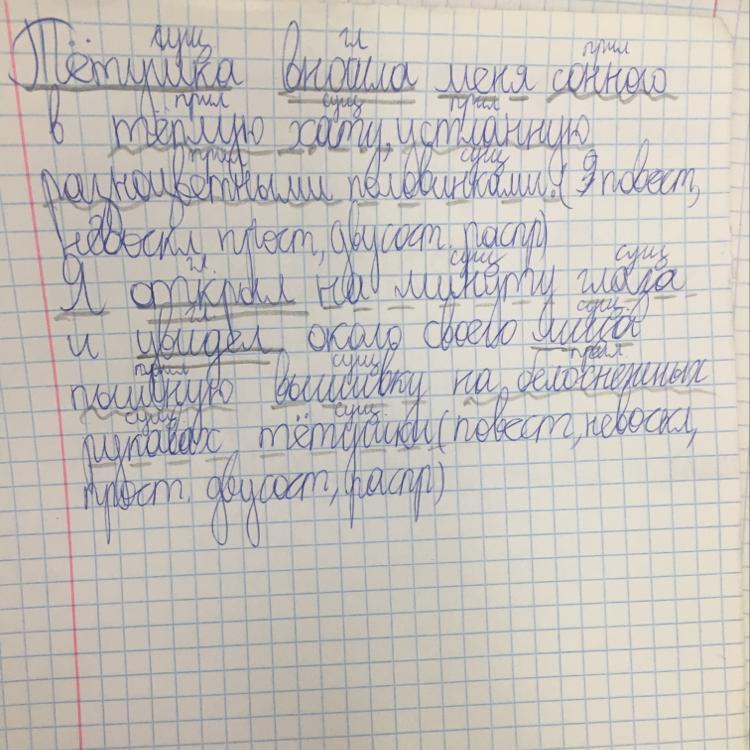 сущ гл прил
Тётушка вносила меня сонного
прил сущ прил
в тёплую хату, устланную
прил сущ
разноцветными половиками. (повест,
невоскл, прост, двусост. распр)
гл. сущ сущ
Я открыл на минуту глаза
гл сущ
и увидел около своего лица
прил сущ прил
пышную вышивку на белоснежных
сущ сущ
рукавах тётушки (повест, невоскл,
прост. двусост, распр)